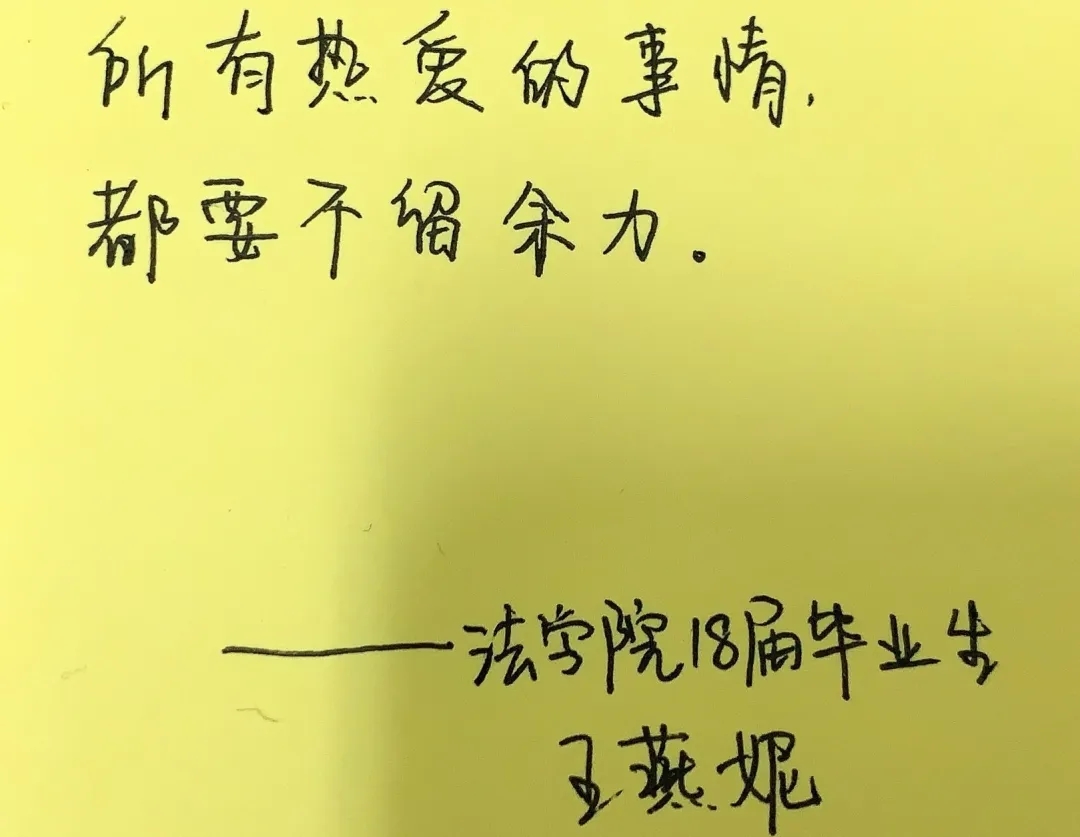 所有热爱的事情,
都要不留余力。
——法学院18届毕业生
王燕妮